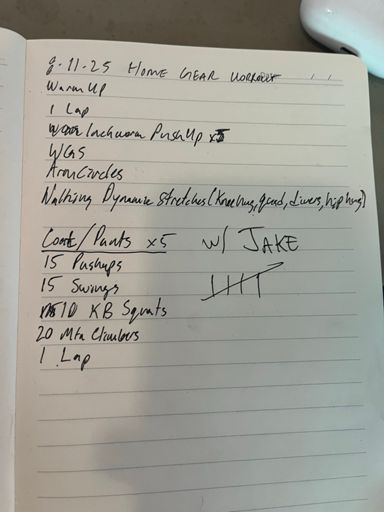 8-11-25 HOME GEAR WORKOUT
Warm Up
1 Lap
Inchworm PushUp x5
WGS
Arm Circles
Walking Dynamic Stretches (Knee hug, quad, divers, hip hug)
Coat/Pants x5 w/ JAKE
15 Pushups
15 Swings
10 KB Squats
20 Mtn Climbers
1 Lap